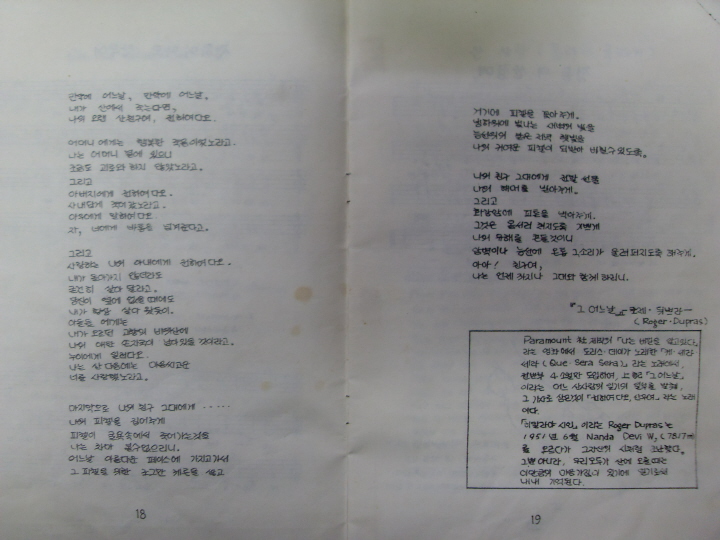 만약에 어느날, 만약에 어느날,
내가 산에서 죽는다면,
나의 오랜 산친구여, 전하여다오.
어머니에게는 행복한 죽음이었노라고.
나는 어머니 곁에 있으니
조금도 고통와 하지 않았노라고.
그리고
아버지에게 전하여다오.
사내답게 죽어갔노라고.
아우에게 말하여다오
자, 너에게 바통을 넘겨준다고.
그리고
사랑하는 나의 아내에게 전하여다오.
내가 돌아가지 않더라도
꿋꿋이 살아 달라고.
당신이 옆에 없을 때에도
내가 항상 살아 왔듯이.
아들들에게는
내가 오르던 고향의 바위산에
나의 손자국이 남아 있을 것이라고.
누이에게 일러다오.
나는 산 다음에는
너를 사랑했노라고.
마지막으로 나의 친구 그대에게 ......
나의 피켈을 집어주게
피켈이 굴욕속에서 죽어가는것을
나는 차마 볼수없으리니.
어느날 아름다운 페이스에 가지고가서
그 피켈을 위한 조그만 케른을 쌓고
18
거기에 피켈을 꽂아주게.
빙하위에 빛나는 새벽의 빛을
능선위의 붉은 저녁 햇빛을
나의 귀여운 피켈이 되받아 비칠수있도록.
나의 친구 그대에게 전할 선물
나의 해머를 받아주게.
그리고
화강암에 피톤을 박아주게.
그것은 몸서리 쳐지도록 기쁘게
나의 유해를 흔들것이니
암벽이나 능선에 온통 그 소리가 울려 퍼지도록 하여주게.
아아! 친구여,
나는 언제까지나 그대와 함께 하리니.
『그 어느날』 로제·뒤프라—
(Roger·Dupras)
Paramount 社 제작의 「나는 비밀을 알고있다」
라는 영화에서 도리스·데이가 노래한 「케·세라
세라 (Que·Sera Sera)」라는 노래에서,
전반부 4소절만 도입하여, 上記 「그 어느날」
이라는 어느 산사람의 일기의 일부를 발췌,
그 가사로 삼은것이 「전하여다오, 산우여」라는 노래
이다.
「히말라야 시인」이라는 Roger Dupras는
1951년 6월 Nanda Devi W, (7817m)
를 오르다가 그 자신의 시처럼 갔다.
그뿐 아니라, 우리 모두가 산에 오를때면
내내 기억된다.
19